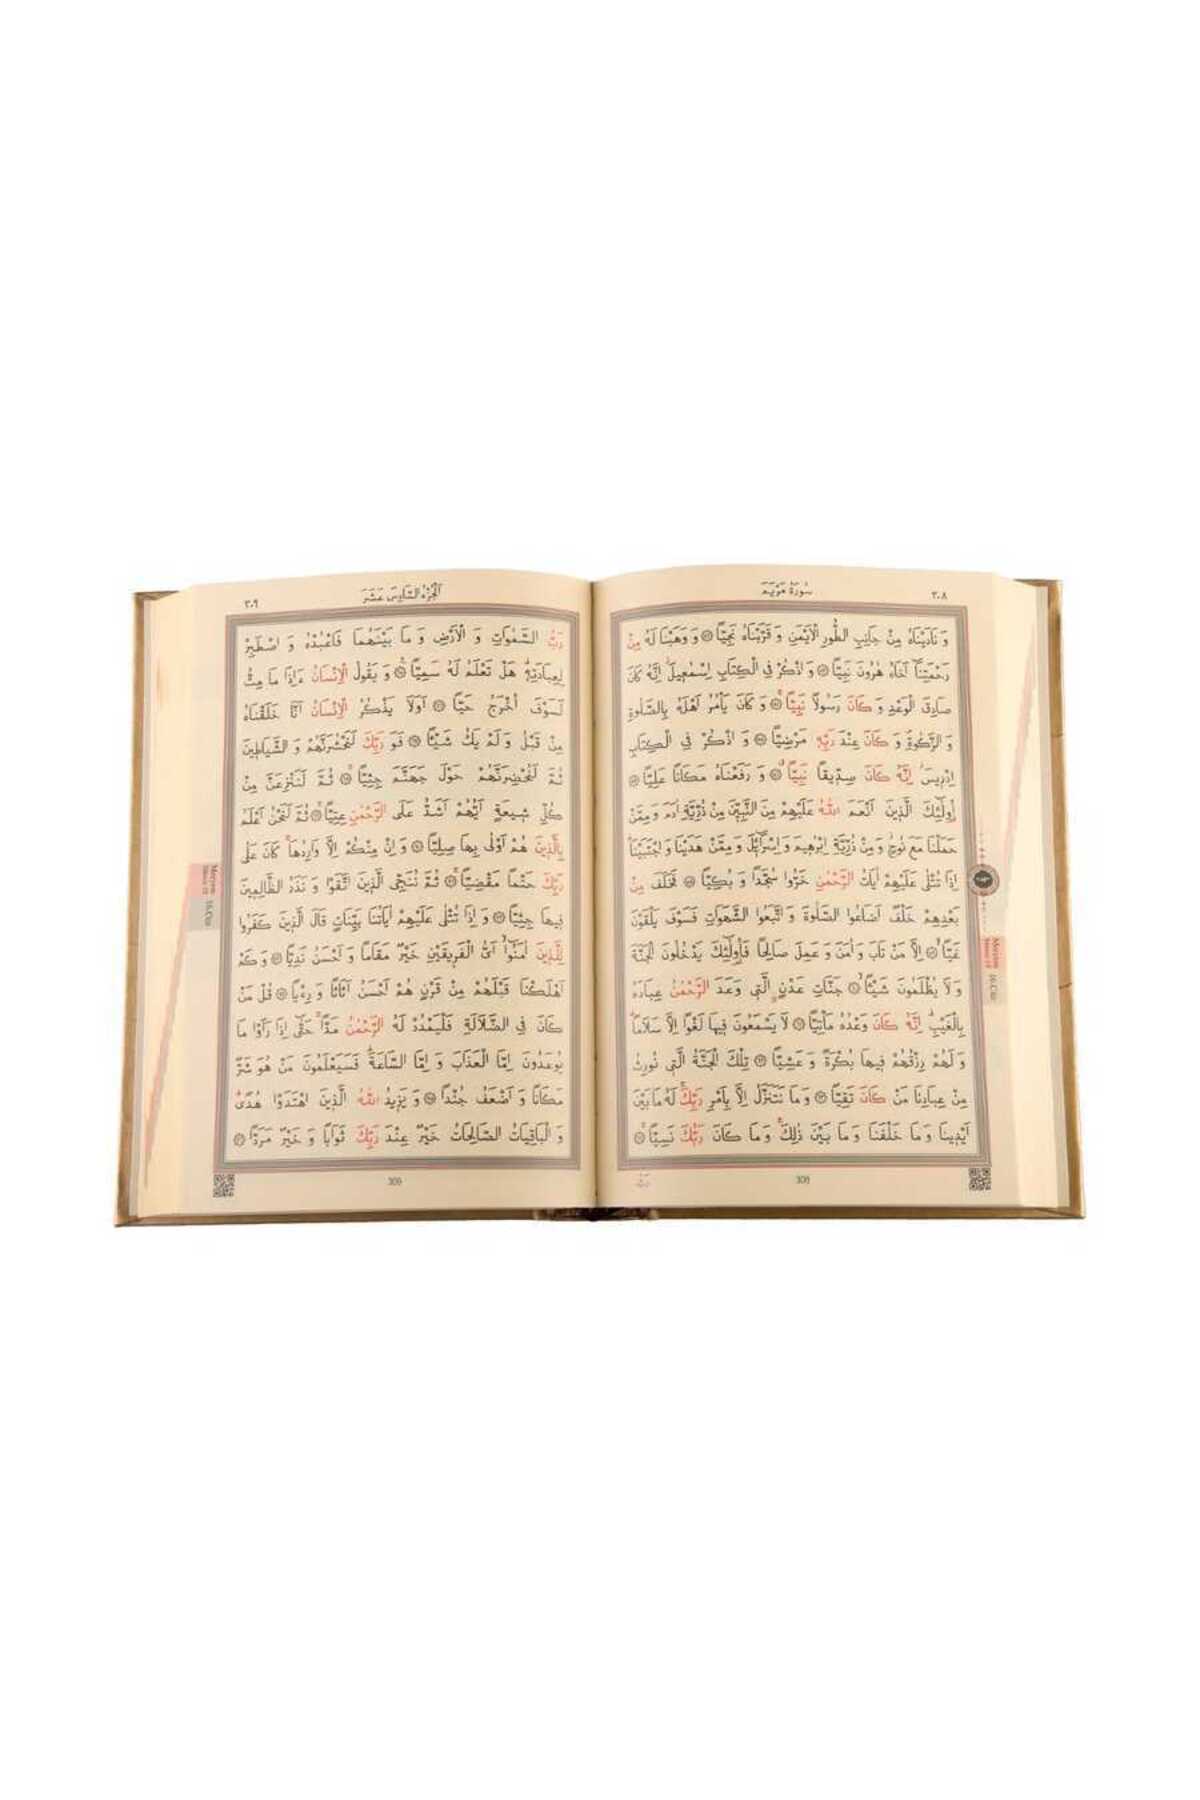 ٣٠٨
سُورَةُ مَرْيَمَ
وَنَادَيْنَاهُ مِنْ جَانِبِ الطُّورِ الْاَيْمَنِ وَقَرَّبْنَاهُ نَجِيًّا ﴿٥٢﴾ وَوَهَبْنَا لَهُ مِنْ
رَحْمَتِنَٓا اَخَاهُ هٰرُونَ نَبِيًّا ﴿٥٣﴾ وَاذْكُرْ فِي الْكِتَابِ اِسْمٰعِيلَۘ اِنَّهُ كَانَ
صَادِقَ الْوَعْدِ وَكَانَ رَسُولًا نَبِيًّاۚ ﴿٥٤﴾ وَكَانَ يَأْمُرُ اَهْلَهُ بِالصَّلٰوةِ
وَالزَّكٰوةِ وَكَانَ عِنْدَ رَبِّهِ مَرْضِيًّا ﴿٥٥﴾ وَاذْكُرْ فِي الْكِتَابِ
اِدْرِيسَۘ اِنَّهُ كَانَ صِدِّيقًا نَبِيًّاۗ ﴿٥٦﴾ وَرَفَعْنَاهُ مَكَانًا عَلِيًّا ﴿٥٧﴾
اُولٰٓئِكَ الَّذِينَ اَنْعَمَ اللّٰهُ عَلَيْهِمْ مِنَ النَّبِيِّنَ مِنْ ذُرِّيَّةِ اٰدَمَ وَمِمَّنْ
حَمَلْنَا مَعَ نُوحٍ وَمِنْ ذُرِّيَّةِ اِبْرٰهِيمَ وَاِسْرَٓائِلَ وَمِمَّنْ هَدَيْنَا وَاجْتَبَيْنَاۜ
اِذَا تُتْلٰى عَلَيْهِمْ اٰيَاتُ الرَّحْمٰنِ خَرُّوا سُجَّدًا وَبُكِيًّا ﴿٥٨﴾ فَخَلَفَ مِنْ
بَعْدِهِمْ خَلْفٌ اَضَاعُوا الصَّلٰوةَ وَاتَّبَعُوا الشَّهَوَاتِ فَسَوْفَ يَلْقَوْنَ
غَيًّاۙ ﴿٥٩﴾ اِلَّا مَنْ تَابَ وَاٰمَنَ وَعَمِلَ صَالِحًا فَاُولٰٓئِكَ يَدْخُلُونَ الْجَنَّةَ
وَلَا يُظْلَمُونَ شَيْئًاۙ ﴿٦٠﴾ جَنَّاتِ عَدْنٍ الَّتِي وَعَدَ الرَّحْمٰنُ عِبَادَهُ
بِالْغَيْبِۜ اِنَّهُ كَانَ وَعْدُهُ مَأْتِيًّا ﴿٦١﴾ لَا يَسْمَعُونَ فِيهَا لَغْوًا اِلَّا سَلَامًاۜ
وَلَهُمْ رِزْقُهُمْ فِيهَا بُكْرَةً وَعَشِيًّا ﴿٦٢﴾ تِلْكَ الْجَنَّةُ الَّتِي نُورِثُ
مِنْ عِبَادِنَا مَنْ كَانَ تَقِيًّا ﴿٦٣﴾ وَمَا نَتَنَزَّلُ اِلَّا بِاَمْرِ رَبِّكَۚ لَهُ مَا بَيْنَ
اَيْدِينَا وَمَا خَلْفَنَا وَمَا بَيْنَ ذٰلِكَۚ وَمَا كَانَ رَبُّكَ نَسِيًّاۚ ﴿٦٤﴾
رَبُّ
308
Meryem
Sûresi 19
16.Cüz
٣٠٩
اَلْجُزْءُ السَّادِسَ عَشَرَ
رَبُّ السَّمٰوَاتِ وَالْاَرْضِ وَمَا بَيْنَهُمَا فَاعْبُدْهُ وَاصْطَبِرْ
لِعِبَادَتِهِۜ هَلْ تَعْلَمُ لَهُ سَمِيًّا۟ ﴿٦٥﴾ وَيَقُولُ الْاِنْسَانُ ءَاِذَا مَا مِتُّ
لَسَوْفَ اُخْرَجُ حَيًّا ﴿٦٦﴾ اَوَلَا يَذْكُرُ الْاِنْسَانُ اَنَّا خَلَقْنَاهُ
مِنْ قَبْلُ وَلَمْ يَكُ شَيْئًا ﴿٦٧﴾ فَوَ رَبِّكَ لَنَحْشُرَنَّهُمْ وَالشَّيَاطِينَ
ثُمَّ لَنُحْضِرَنَّهُمْ حَوْلَ جَهَنَّمَ جِثِيًّاۚ ﴿٦٨﴾ ثُمَّ لَنَنْزِعَنَّ مِنْ
كُلِّ شِيعَةٍ اَيُّهُمْ اَشَدُّ عَلَى الرَّحْمٰنِ عِتِيًّاۚ ﴿٦٩﴾ ثُمَّ لَنَحْنُ اَعْلَمُ
بِالَّذِينَ هُمْ اَوْلٰى بِهَا صِلِيًّا ﴿٧٠﴾ وَاِنْ مِنْكُمْ اِلَّا وَارِدُهَاۚ كَانَ عَلٰى
رَبِّكَ حَتْمًا مَقْضِيًّاۚ ﴿٧١﴾ ثُمَّ نُنَجِّي الَّذِينَ اتَّقَوْا وَنَذَرُ الظَّالِمِينَ
فِيهَا جِثِيًّا ﴿٧٢﴾ وَاِذَا تُتْلٰى عَلَيْهِمْ اٰيَاتُنَا بَيِّنَاتٍ قَالَ الَّذِينَ كَفَرُوا
لِلَّذِينَ اٰمَنُٓوا اَيُّ الْفَرِيقَيْنِ خَيْرٌ مَقَامًا وَاَحْسَنُ نَدِيًّا ﴿٧٣﴾ وَكَمْ
اَهْلَكْنَا قَبْلَهُمْ مِنْ قَرْنٍ هُمْ اَحْسَنُ اَثَاثًا وَرِءْيًا ﴿٧٤﴾ قُلْ مَنْ
كَانَ فِي الضَّلَالَةِ فَلْيَمْدُدْ لَهُ الرَّحْمٰنُ مَدًّاۚ حَتّٰٓى اِذَا رَاَوْا مَا
يُوعَدُونَ اِمَّا الْعَذَابَ وَاِمَّا السَّاعَةَۜ فَسَيَعْلَمُونَ مَنْ هُوَ شَرٌّ
مَكَانًا وَاَضْعَفُ جُنْدًا ﴿٧٥﴾ وَيَزِيدُ اللّٰهُ الَّذِينَ اهْتَدَوْا هُدًىۜ
وَالْبَاقِيَاتُ الصَّالِحَاتُ خَيْرٌ عِنْدَ رَبِّكَ ثَوَابًا وَخَيْرٌ مَرَدًّا ﴿٧٦﴾
309
Meryem
Sûresi 19
16.Cüz